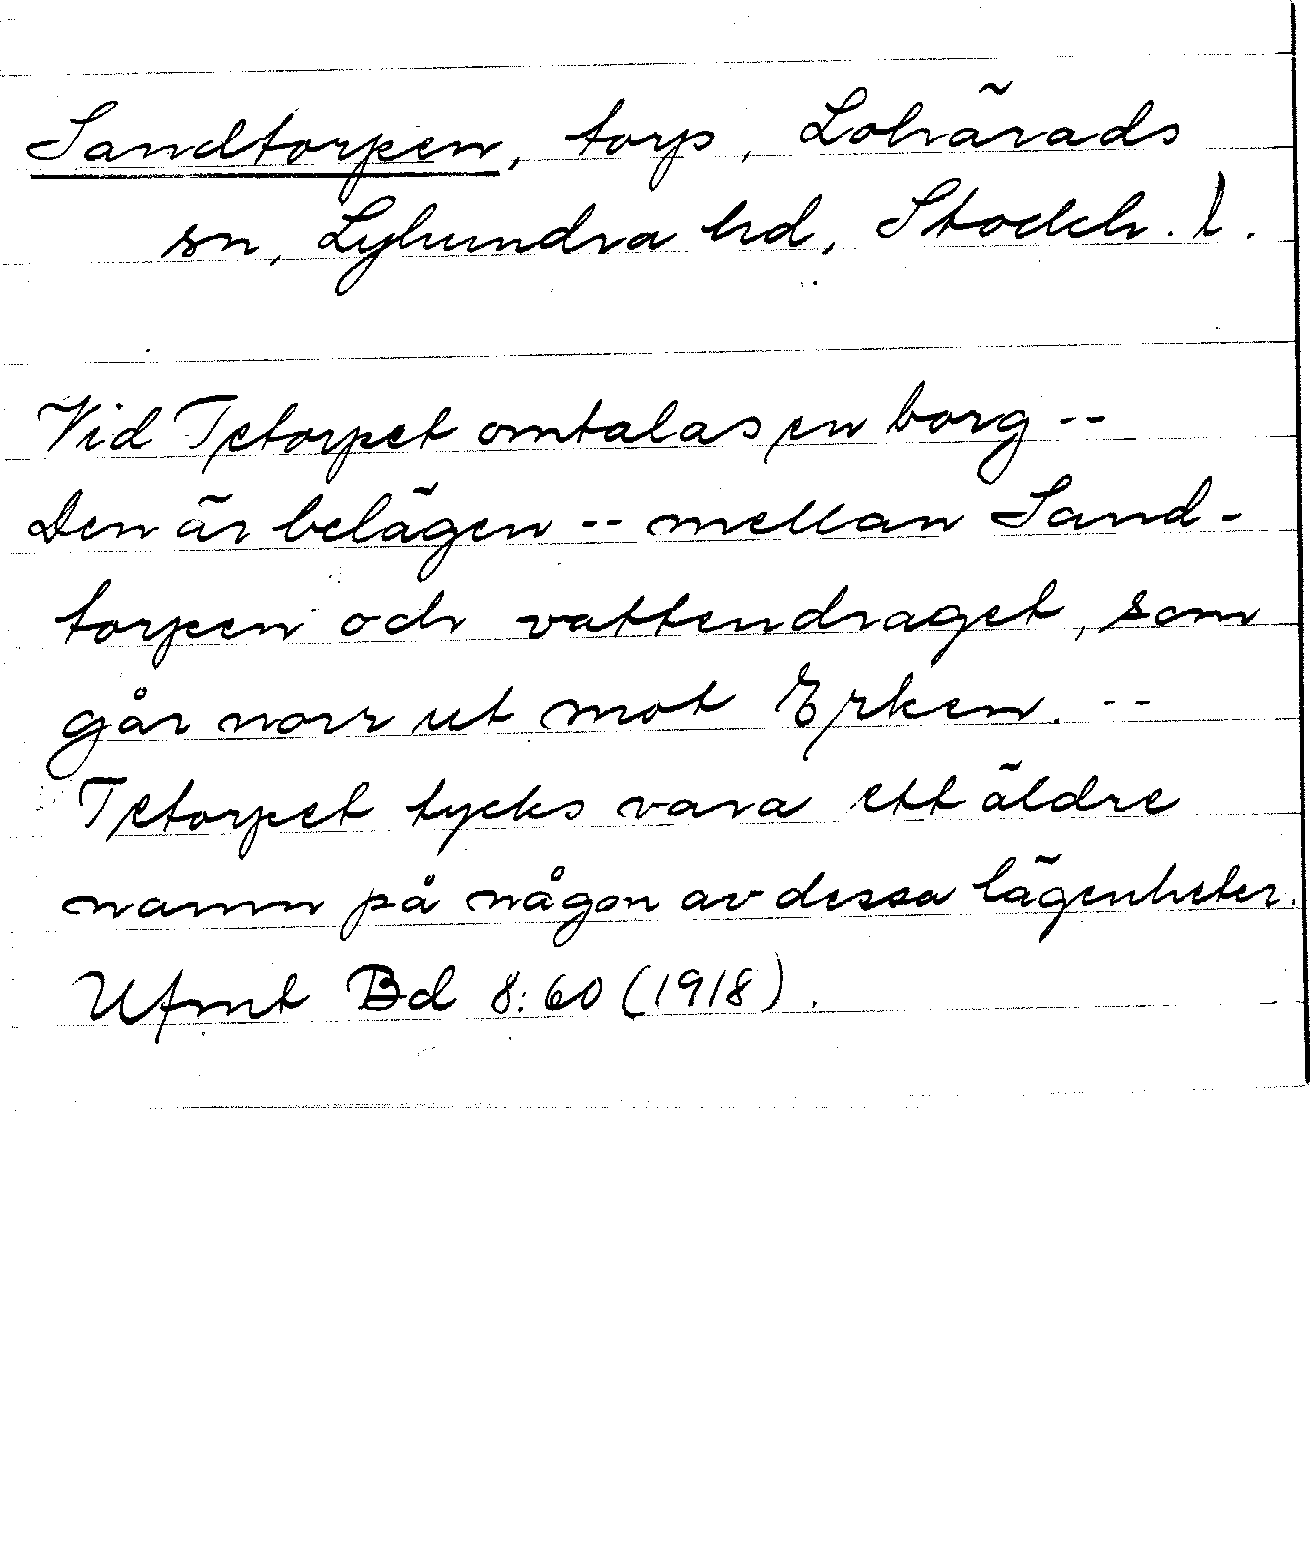 Sandtorpen, torp, Lohärads
sn, Lyhundra hd, Stockh. l.
Vid Tetorpet omtalas en borg --
Den är belägen -- mellan Sand-
torpen och vattendraget, som
går norr ut mot Erken. --
Tetorpet tycks vara ett äldre
namn på någon av dessa lägenheter.
Ufmt Bd 8:60 (1918).